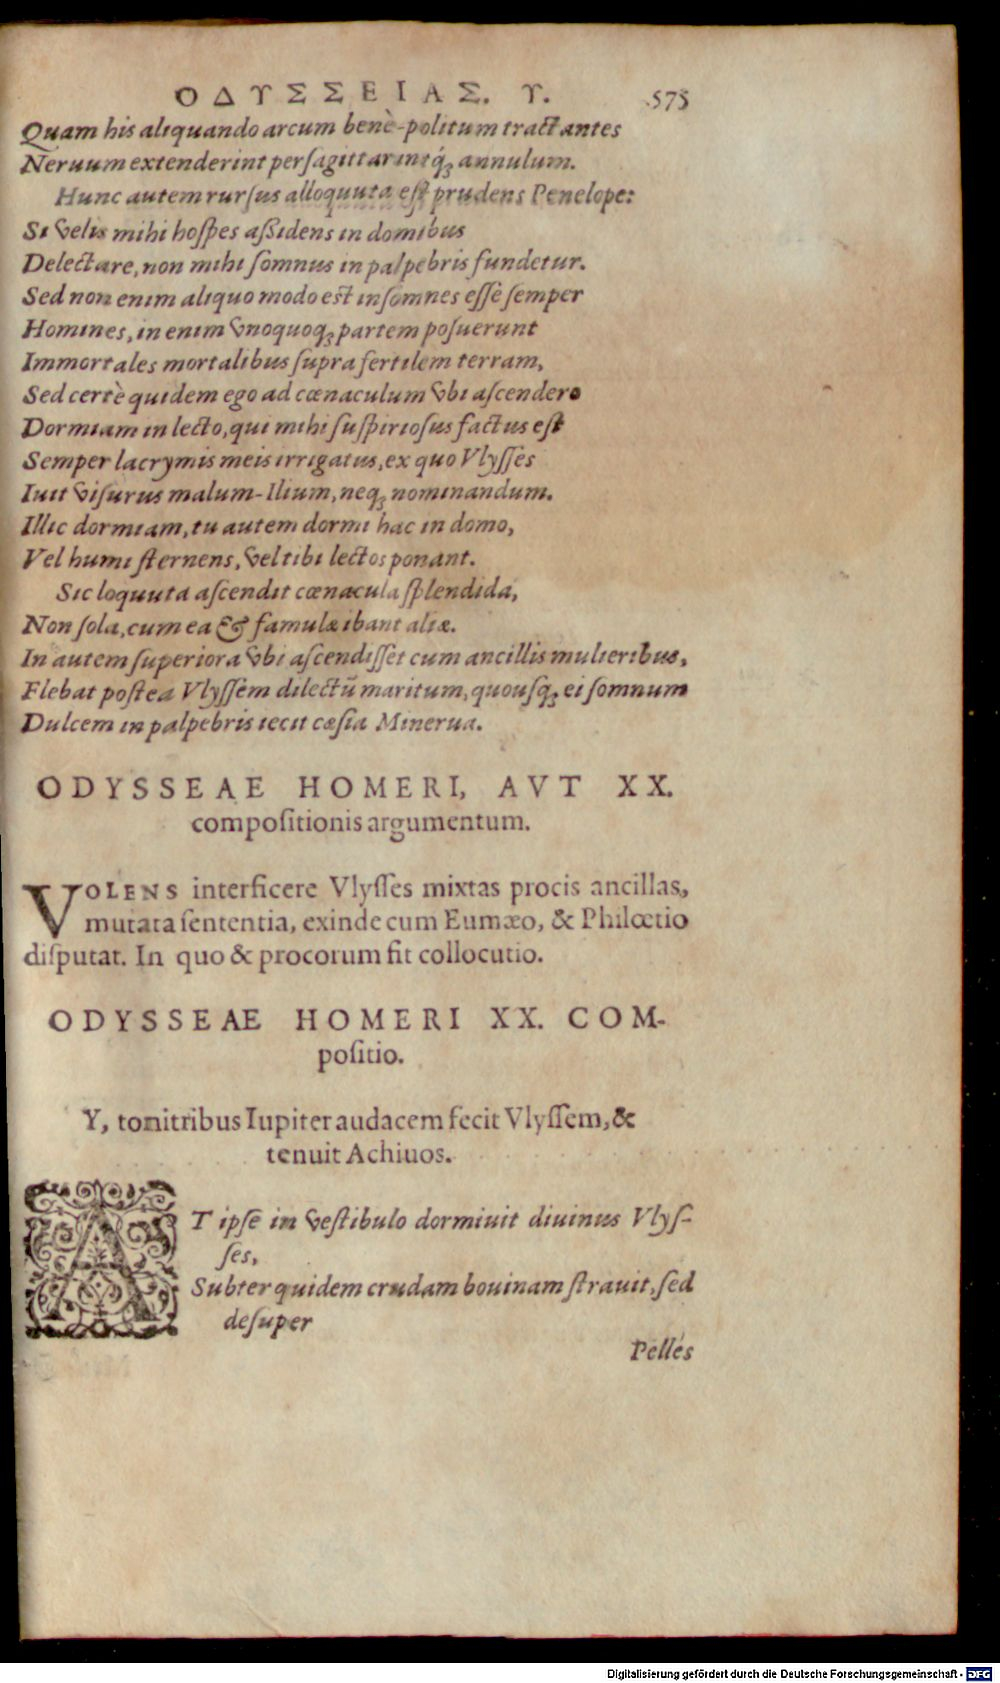 ΟΔΥΣΣΕΙΑΣ. Υ. 575
Quam his aliquando arcum benè-politum tractantes
Neruum extenderint persagittarintq́ꝫ annulum.
Hunc autem rursus alloquuta est prudens Penelope:
Si velis mihi hospes assidens in domibus
Delectare, non mihi somnus in palpebris fundetur.
Sed non enim aliquo modo est insomnes esse semper
Homines, in enim vnoquoqꝫ partem posuerunt
Immortales mortalibus supra fertilem terram,
Sed certè quidem ego ad cœnaculum vbi ascendero
Dormiam in lecto, qui mihi suspiriosus factus est
Semper lacrymis meis irrigatus, ex quo Vlysses
Iuit visurus malum-Ilium, neqꝫ nominandum.
Illic dormiam, tu autem dormi hac in domo,
Vel humi sternens, vel tibi lectos ponant.
Sic loquuta ascendit cœnacula splendida,
Non sola, cum ea & famulæ ibant aliæ.
In autem superiora vbi ascendisset cum ancillis mulieribus,
Flebat postea Vlyssem dilectũ maritum, quousqꝫ ei somnum
Dulcem in palpebris iecit cæsia Minerua.
ODYSSEAE HOMERI, AVT XX.
compositionis argumentum.
VOLENS interficere Vlysses mixtas procis ancillas,
mutata sententia, exinde cum Eumæo, & Philœtio
disputat. In quo & procorum fit collocutio.
ODYSSEAE HOMERI XX. COM-
positio.
Y, tonitribus Iupiter audacem fecit Vlyssem, &
tenuit Achiuos.
AT ipse in vestibulo dormiuit diuinus Vlys-
ses,
Subter quidem crudam bouinam strauit, sed
desuper
Pelles
Digitalisierung gefördert durch die Deutsche Forschungsgemeinschaft - DFG